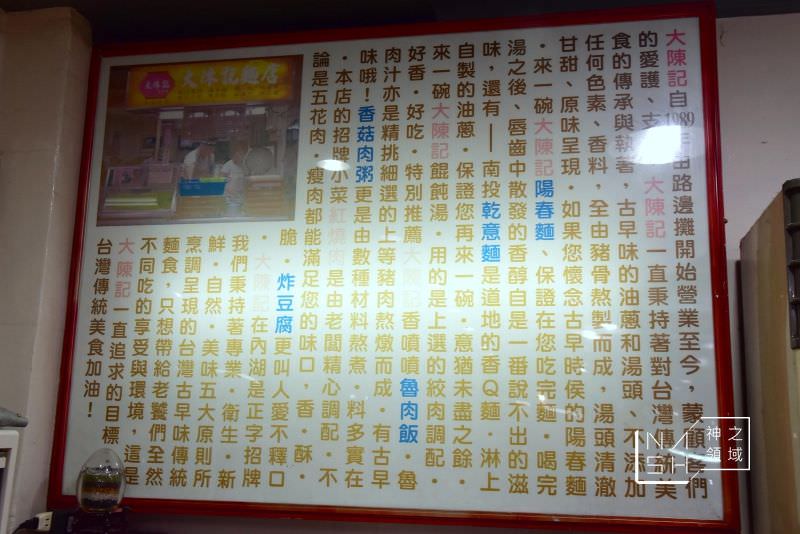 大陳記飯店
大陳記自1989年由路邊攤開始營業至今，蒙顧客們
的愛護、支
大陳記一直秉持著對台灣傳統美
食的傳承與執著，古早味的油蔥和湯頭、不添加
任何色素、香料，全由豬骨熬製而成，湯頭清澈
甘甜、原味呈現。如果您懷念古早時侯的陽春麵
．來一碗大陳記陽春麵、保證在您吃完麵．喝完
湯之後、唇齒中散發的香醇自是一番說不出的滋
味，還有──南投乾意麵是道地的香Q麵．淋上
自製的油蔥．保證您再來一碗．意猶未盡之餘．
來一碗大陳記餛飩湯．用的是上選的絞肉調配．
好香．好吃．特別推薦大陳記香噴噴魯肉飯．魯
肉汁亦是精挑細選的上等豬肉熬燉而成．有古早
味哦！香菇肉粥更是由數種材料熬煮．料多實在
．本店的招牌小菜紅燒肉是由老闆精心調配．不
論是五花肉．瘦肉都能滿足您的味口，香．酥．
脆．炸豆腐更叫人愛不釋口
．大陳記在內湖是正字招牌
我們秉持著專業．衛生．新
鮮．自然．美味五大原則所
烹調呈現的台灣古早味傳統
麵食，只想帶給老饕們全然
不同吃的享受與環境，這是
大陳記一直追求的目標
台灣傳統美食加油！
神之
領域